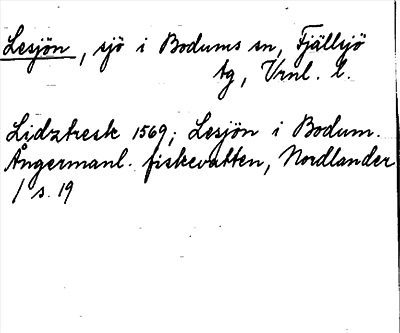 Lesjön, sjö i Bodums sn, Fjällsjö
tg, Vrnl. l.
Lidztresk 1569; Lesjön i Bodum.
Ångermanl. fiskevatten, Nordlander
1 s. 19